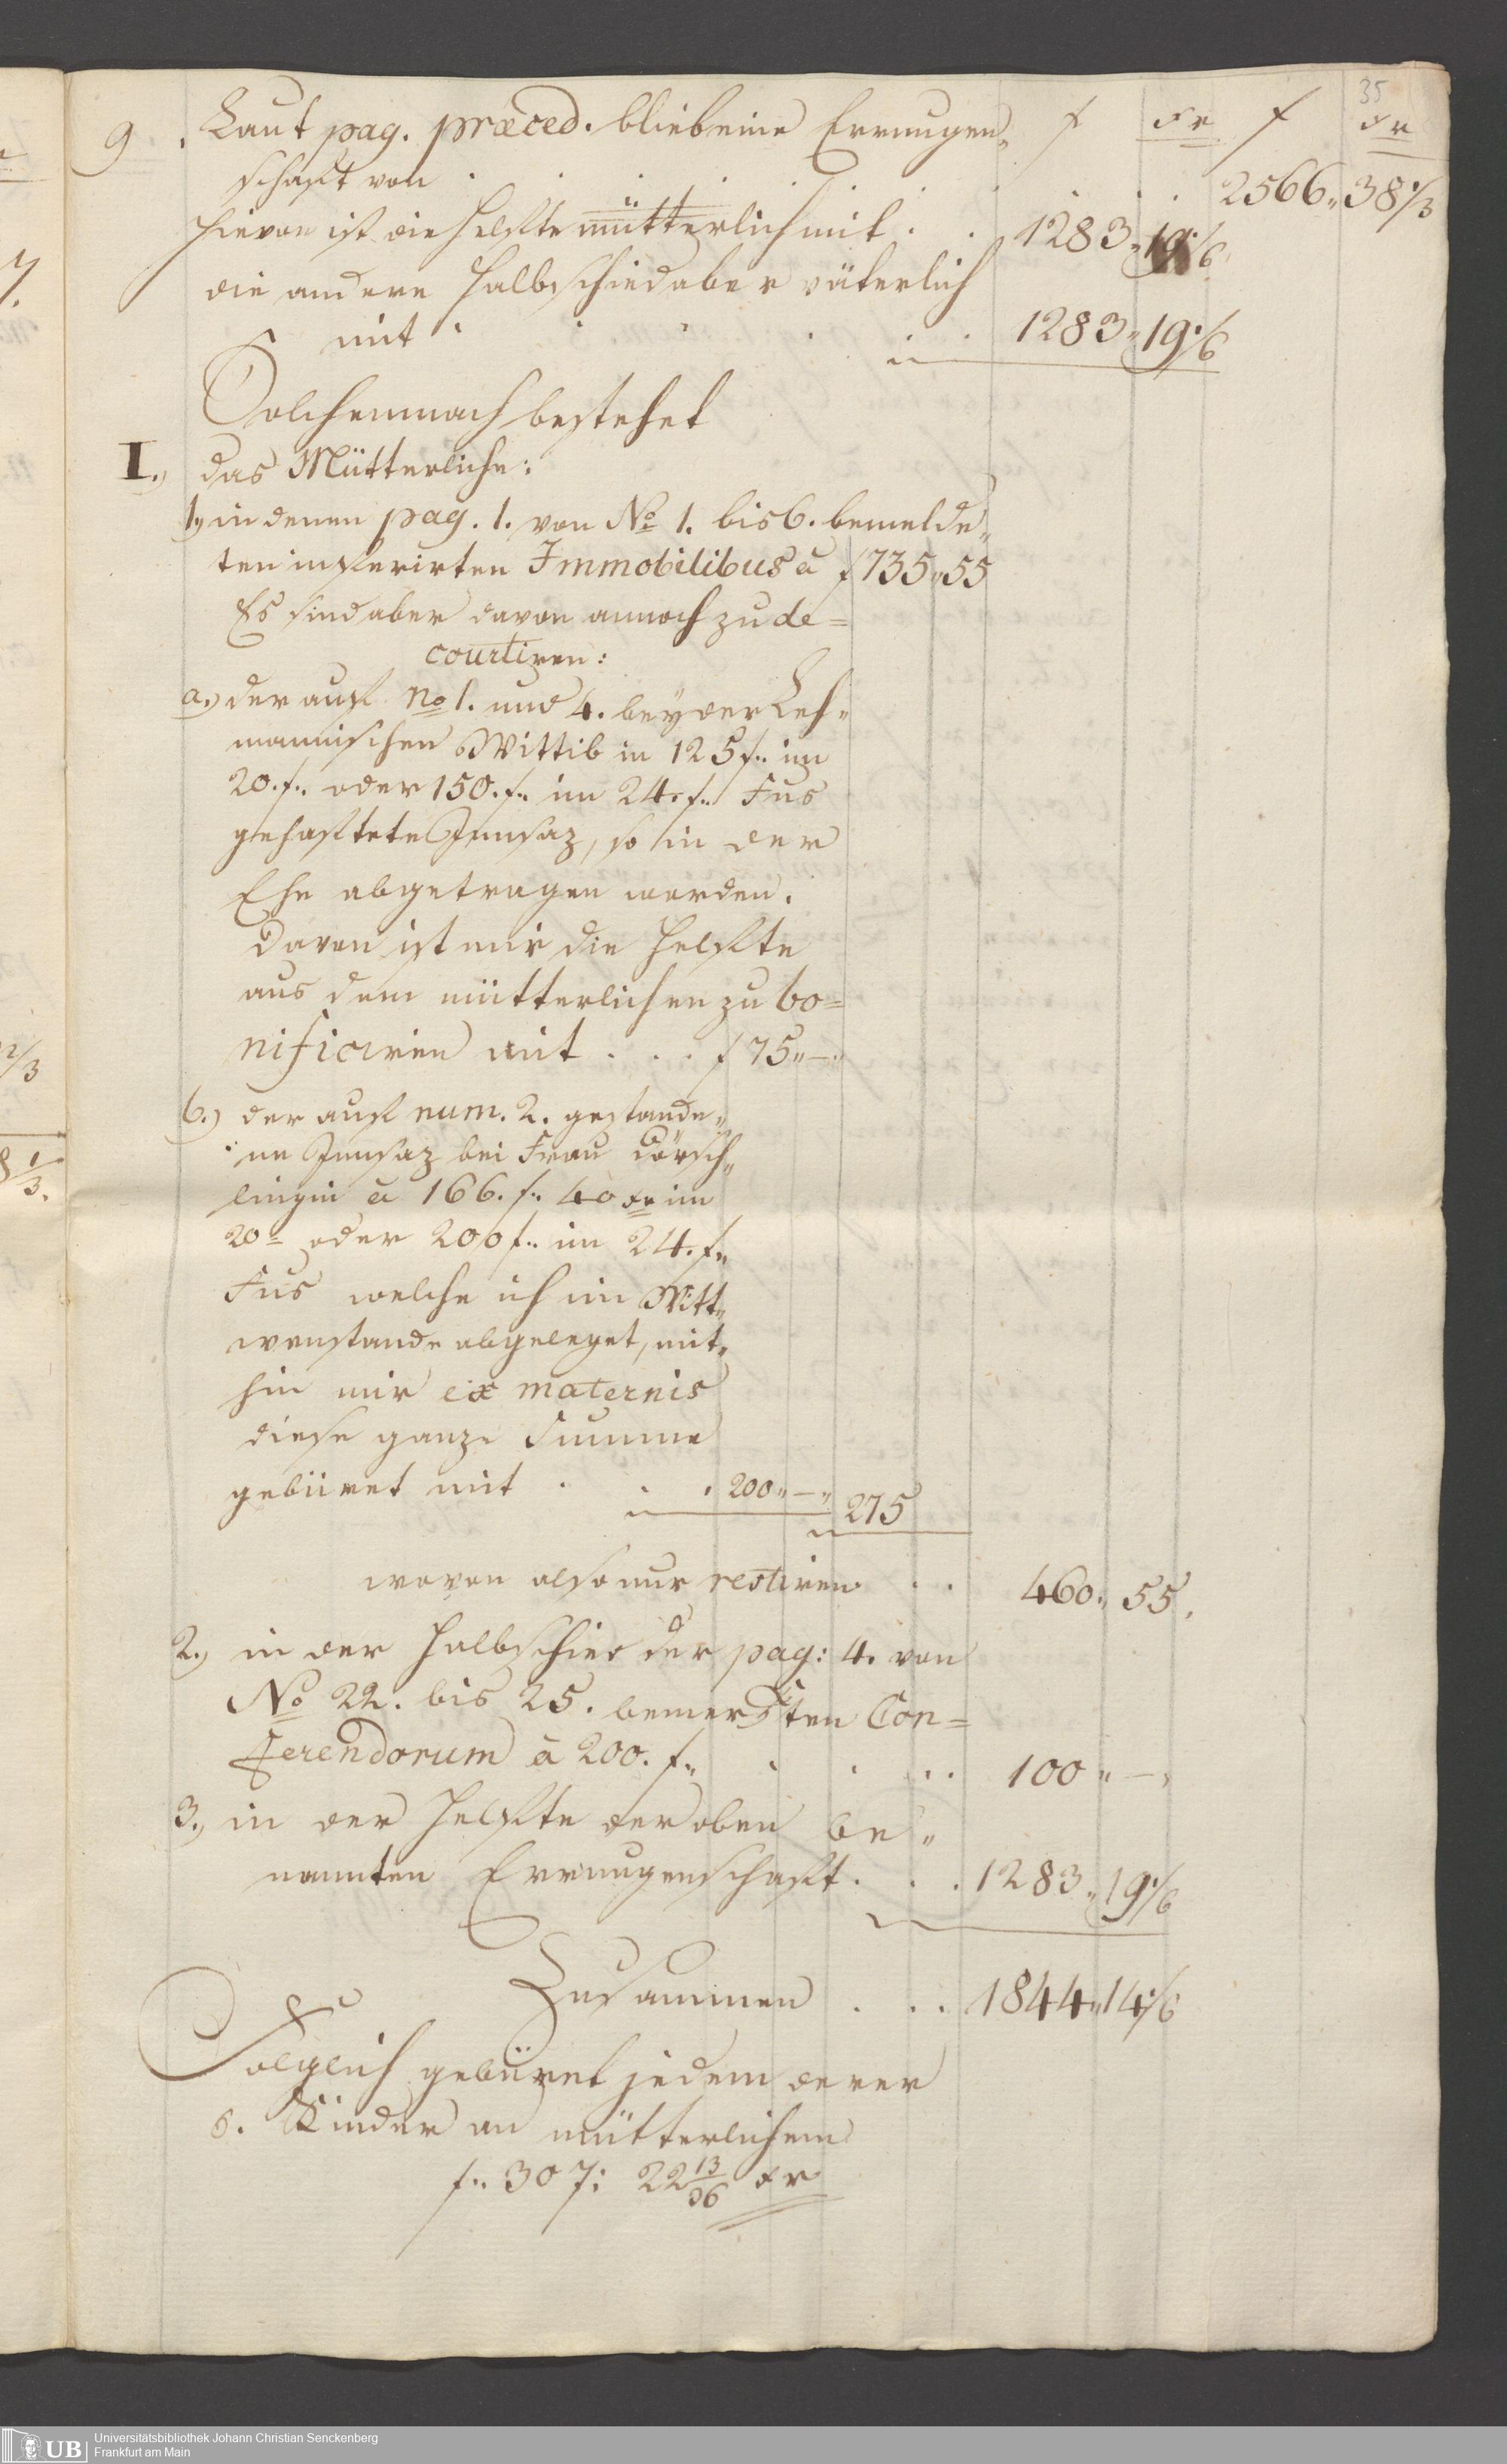 35
9. Laut pag. præced. blieb eine Errungen„ f xr f xr
schaft von . . . . . . . 2566„ 38 1/3
hievon ist die Helfte mütterlich mit . . 1283„ 19 1/6
die andere Halbschied aber väterlich
mit . . . . . . 1283„ 19 1/6
Solchemnach bestehet
I.) das Mütterliche:
1.) in denen pag. 1. von No 1. bis 6. bemelde„
ten inferirten Immobilibus à f 735„55
Es sind aber davon annoch zu de=
courtiren:
a.) der auf No 1. und 4. bey der Leh„
mannischen Wittib in 125 f.. im
20. f.. oder 150. f.. im 24. f.. Fus
gehaftete Innsaz, so in der
Ehe abgetragen worden.
Davon ist mir die Helfte
aus dem mütterlichen zu bo=
nificiren mit . . . f 75„—„
b.) der auf num. 2. gestande„
ne Innsaz bei Frau Dörsch„
lingin à 166. f.. 40 xr im
20= oder 200 f.. im 24. f..
Fus welche ich im Witt„
wenstande abgeleget, mit„
hin mir ex maternis
diese ganze Summe
gebüret mit . . . 200„—„ 275
wovon also nur restiren . . 460„ 55.
2.) in der Halbschied der pag: 4. von
No 22. bis 25. bemerckten Con=
ferendorum à 200. f.. . . . . 100„—„
3.) in der Helfte der oben be„
nannten Errungenschaft . . . 1283„ 19 1/6
Zusammen . . . 1844„ 14 1/6
Folglich gebüret jedem derer
6. Kinder an mütterlichem
f.. 307: 22 13/36 xr
7.
2/3
8 1/3.
UB
Universitätsbibliothek Johann Christian Senckenberg
Frankfurt am Main